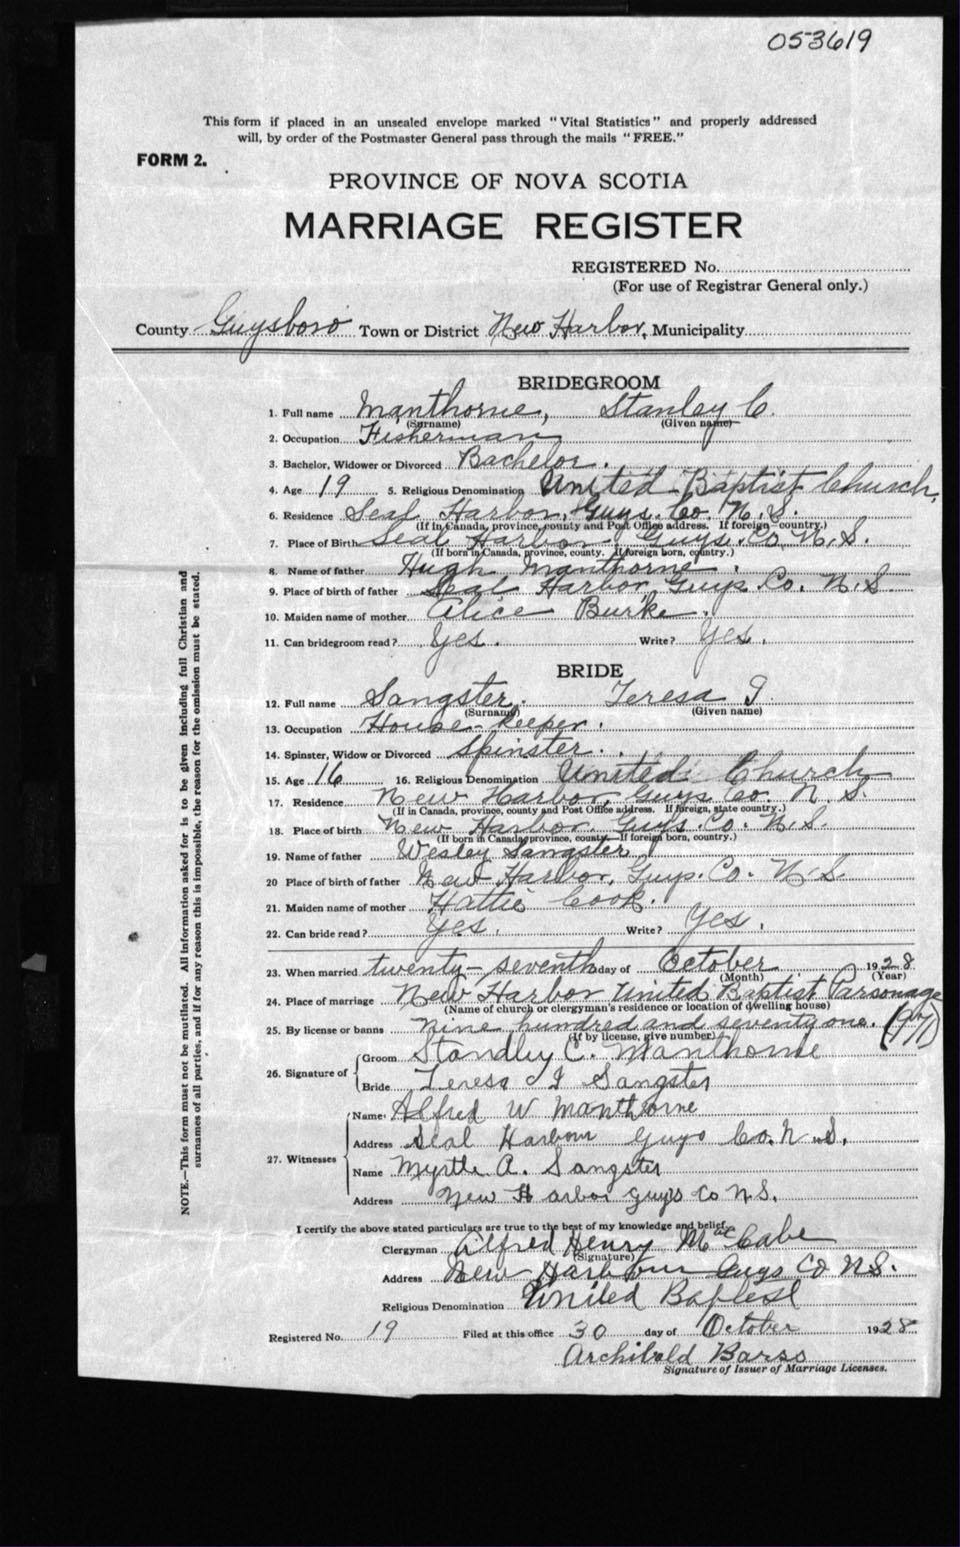 053619
This form if placed in an unsealed envelope marked "Vital Statistics" and properly addressed
will, by order of the Postmaster General pass through the mails "FREE."
FORM 2.
PROVINCE OF NOVA SCOTIA
MARRIAGE REGISTER
REGISTERED No.
(For use of Registrar General only.)
County Guysboro Town or District New Harbor, Municipality
BRIDEGROOM
1. Full name Manthorne, Stanley C.
(Surname) (Given name)
2. Occupation Fisherman
3. Bachelor, Widower or Divorced Bachelor.
4. Age 19 5. Religious Denomination United Baptist Church,
6. Residence Seal Harbor, Guys. Co. N.S.
(If in Canada, province, county and Post Office address. If foreign country.)
7. Place of Birth Seal Harbor, Guys. Co. N.S.
(If born in Canada, province, county. If foreign born, country.)
8. Name of father Hugh Manthorne.
9. Place of birth of father Seal Harbor, Guys Co. N.S.
10. Maiden name of mother Alice Burke.
11. Can bridegroom read? Yes. Write? Yes.
BRIDE
12. Full name Sangster. Teresa I.
(Surname) (Given name)
13. Occupation House-keeper.
14. Spinster, Widow or Divorced Spinster.
15. Age 16 16. Religious Denomination United Church
17. Residence New Harbor, Guys Co. N.S.
(If in Canada, province, county and Post Office address. If foreign, state country.)
18. Place of birth New Harbor, Guys. Co. N.S.
(If born in Canada, province, county—If foreign born, country.)
19. Name of father Wesley Sangster,
20 Place of birth of father New Harbor, Guys. Co. N.S
21. Maiden name of mother Hattie Cook.
22. Can bride read? Yes. Write? Yes.
23. When married twenty-seventh day of October 1928
(Month) (Year)
24. Place of marriage New Harbor United Baptist Parsonage
(Name of church or clergyman's residence or location of dwelling house)
25. By license or banns nine hundred and seventy one. (971)
(If by license, give number)
26. Signature of Groom Standley C. Manthorne
Bride Teresa I Sangster
27. Witnesses
Name Alfred W Manthorne
Address Seal Harbour Guys Co. N.S.
Name Myrtle A. Sangster
Address New Harbor Guys Co N.S.
I certify the above stated particulars are true to the best of my knowledge and belief.
Clergyman Alfred Henry MacCabe
(Signature)
Address New Harbour Guys Co N.S.
Religious Denomination United Baptist
Registered No. 19 Filed at this office 30 day of October 1928
Archibald Barss
Signature of Issuer of Marriage Licenses.
NOTE.—This form must not be mutilated. All information asked for is to be given including full Christian and
surnames of all parties, and if for any reason this is impossible, the reason for the omission must be stated.